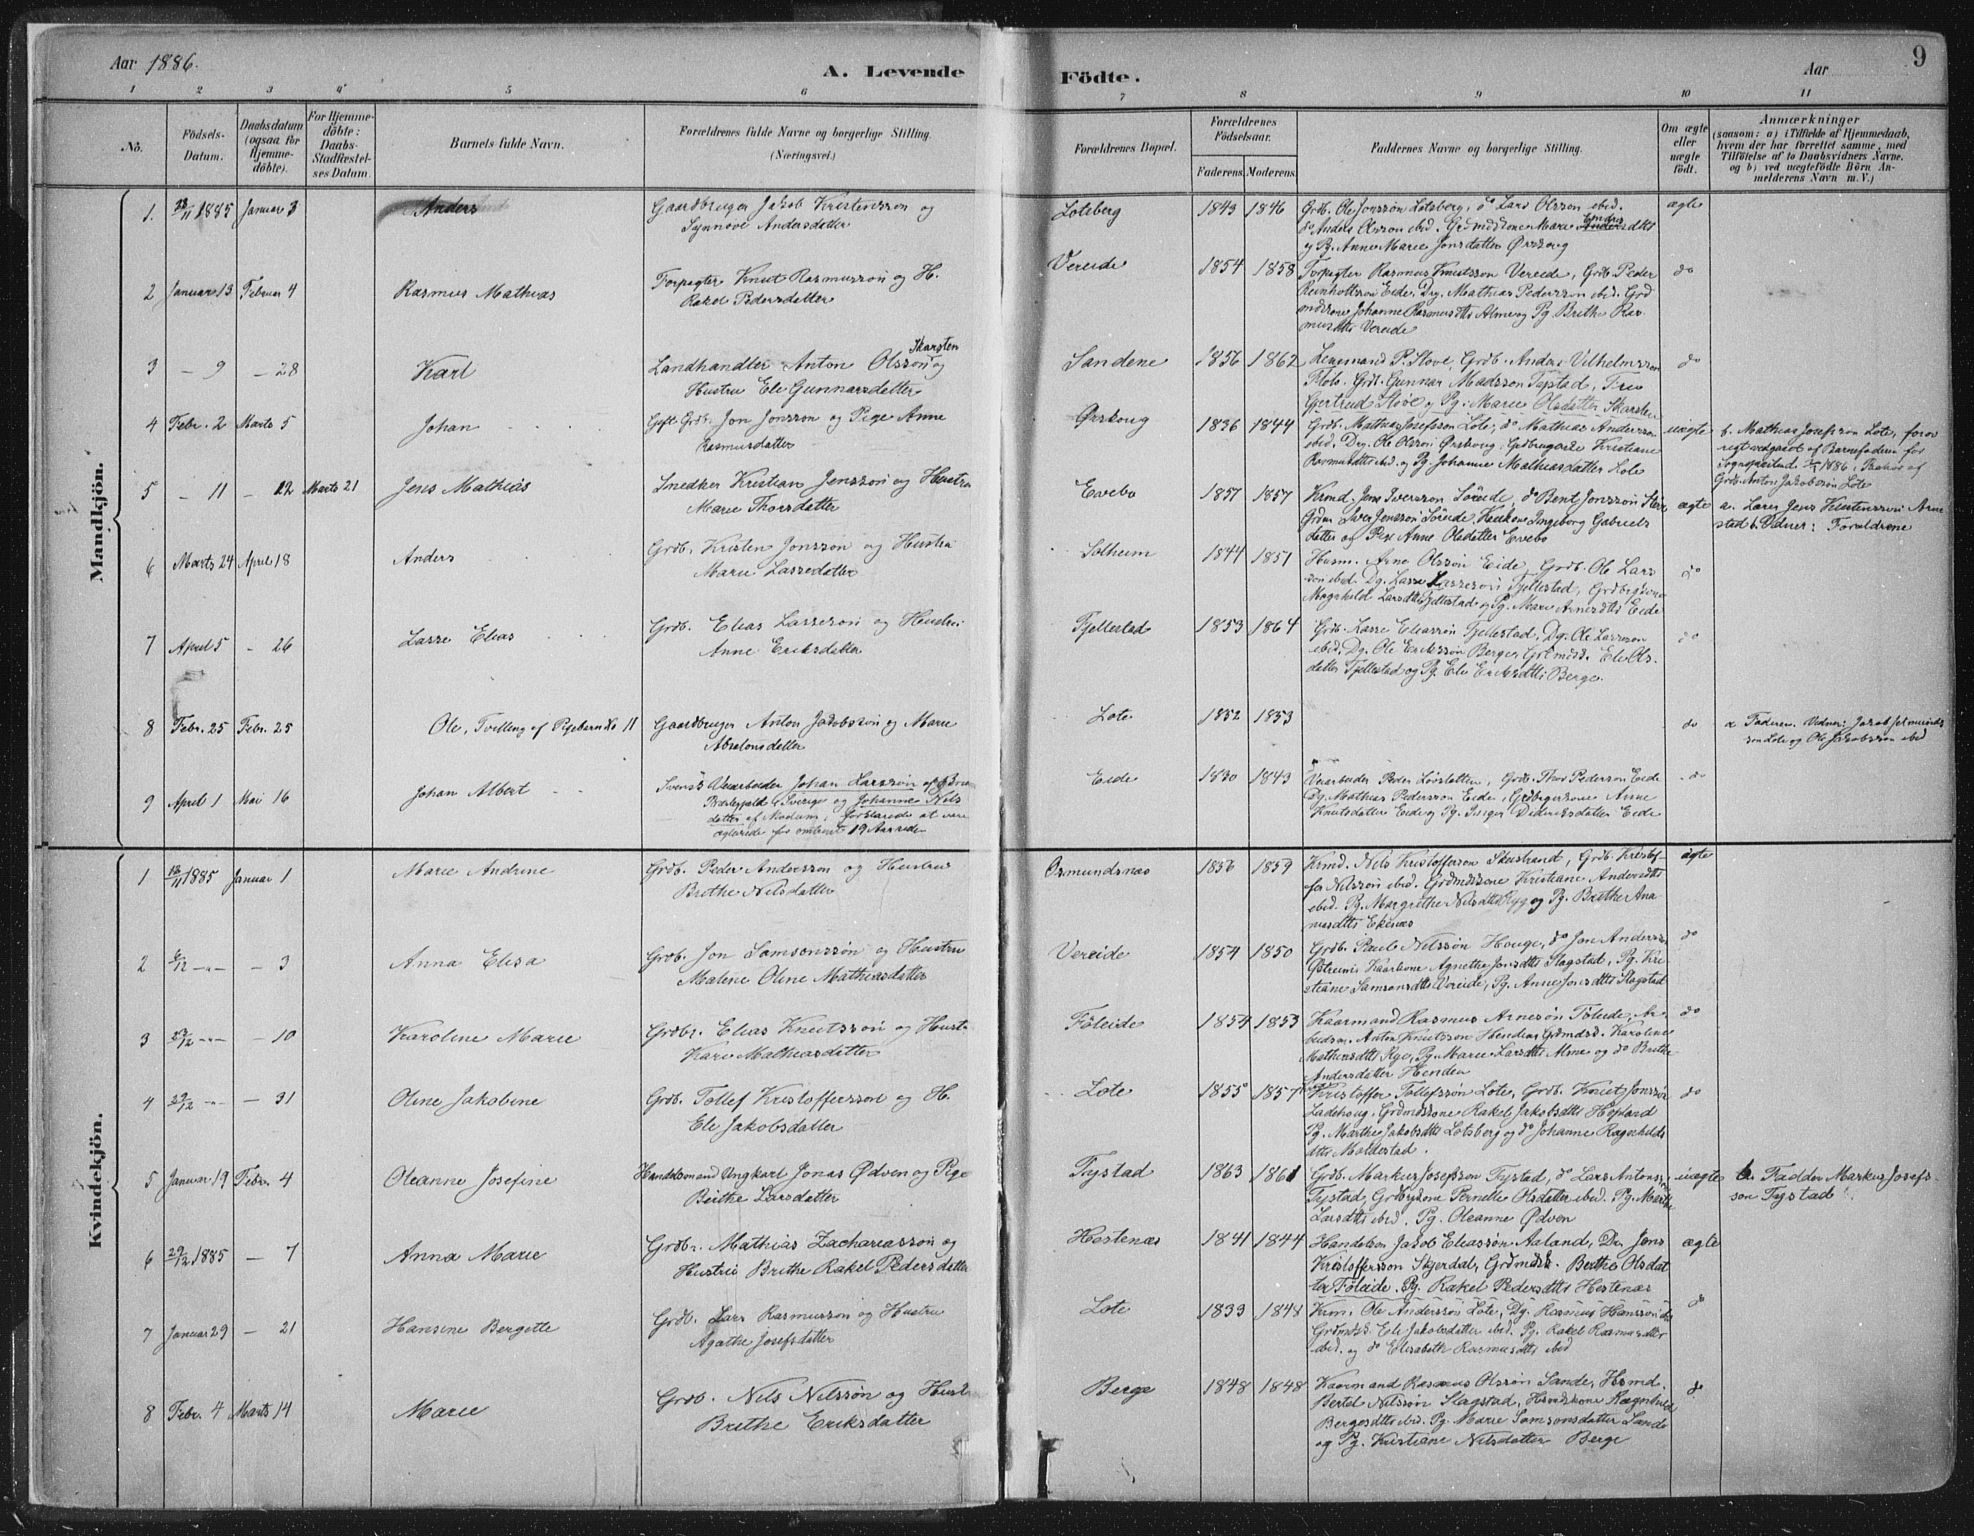 Aar 1886.
A. Levende
Födte.
Aar
9
1 2 3 4 5 6 7 8 9 10 11
No.
Födsels-
Datum.
Daabsdatum
(ogsaa for
Hjemme-
döbte).
For Hjemme-
döbte:
Daabs-
Stadfæstel-
ses Datum.
Barnets fulde Navn.
Forældrenes fulde Navne og borgerlige Stilling.
(Næringsvei.)
Forældrenes Bopæl.
Forældrenes
Födselsaar.
Faderens. Moderens.
Faddernes Navne og borgerlige Stilling.
Om ægte
eller
uægte
födt.
Anmærkninger
(saasom: a) i Tilfælde af Hjemmedaab,
hvem der har forrettet samme, med
Tilföielse af to Daabsvidners Navne,
og b) ved uægtefödte Börn An-
melderens Navn m. V.)
Mandkjön.
1. 1885 Januar 3 Anders
Gaardbruger Jakob Kristensson og
Synnove Andersdatter
Lotsberg 1843 1846
Grdb. Ole Jonssøn Lotsberg, do Lars Olsson ebid.
do Anders Olsson ebid.
Pg. Anne Marie Jonsdatter Ørskoug
ægte
2 Januar 13 Februar 4 Rasmus Mathias
Forpagter Knut Rasmussøn og H.
Rakel Pedersdatter
Vereide 1854 1858
Forpagter Rasmus Knutsson Vereide, Grdb. Peder
Reinholtsøn Eide, Drg. Mathias Pederssøn ebid. Grd
mdskone Johanne Rasmusdtt Alme og Pg. Brithe Ras
musdtts Vereide
do
3 – 9 – 28 Karl
Landhandler Anton Olsson Skarsten og
Hustru Ele Gunnarsdatter
Sandene 1856 1862
Lensmand P. Stove, Grdb. Anders Vilhelmsson
Grdb. Gunnar Madsson Tystad, Fru
Gjertrud Stove og Pg. Marie Olsdatter Skarsten
do
4 Febr. 2 Marts 5 Johan
Gift Grdb. Jon Jonsson og Pige Anne
Rasmusdatter
Ørskoug 1836 1844
Grdb. Mathias Josefsson Lote, do Mathias Anderssøn
ebid. Drg. Ole Olsson Ørskoug, Kristiane
Rasmusdtts ebid. og Pg. Johanne Mathiasdatter Lote
uægte
b. Mathias Josefsøn Lote,
vedgaaet af Barnefaderen for
1886,
Grdb. Anton Jakobsøn Lote
5 – 11 – 12 Marts 21 Jens Mathias
Snedker Kristian Jenssøn og Hustru
Marie Thorsdatter
Evebø 1857 1857
Krmd. Jens Iverssøn Søreide, do Bent Jonssøn
Iver Jenssøn Søreide, Ingeborg Gabriels
datter og Pige Anne Olsdatter Evebø
ægte
a. Lærer Jens Kristenssøn Arne
stad b. Vidner: Forældrene
6 Marts 24 April 18 Anders
Grdb. Kristen Jonssøn og Hustru
Marie Lassedatter
Solheim 1844 1851
Husm. Arne Olssøn Eide, Grdb. Ole Lars
søn ebid. Dg. Lasse Lassesøn Fjellestad,
Magnhild Larsdtts Fjellestad og Pg. Marie Arnesdtts Eide
do
7 April 5 – 26 Lasse Elias
Grdb. Elias Lassesøn og Hustru
Anne Eriksdatter
Fjellestad 1853 1864
Grdb. Lasse Eliassøn Fjellestad, Dg. Ole Lassesøn
ebid. Dg. Ole Erikssøn Berge, Ele Ols
datter Fjellestad og Pg. Ele Eriksdtts Berge.
do
8 Febr. 25 Febr. 25 Ole, Tvilling af Pigebarn No 11
Gaardbruger Anton Jakobsson og Marie
Absalonsdatter
Lote 1852 1853
do
a Faderen. Vidner: Jakob
søn Lote og Ole Jakobssøn ebid
9 April 1 Mai 16 Johan Albert
Svensk Veiarbeider Johan Larssøn af
Sverige og Johanne Nils
datter af Modum, forklarede at være
ægteviede for omtrent 19 Aar siden
Eide 1830 1843
Veiarbeider Peder Løvslotten, Grdb. Thor Pedersøn Eide
Dg. Mathias Pederssøn Eide, Anne
Knutsdatter Eide og Pg. Inger Dideriksdatter Eide
do
Kvindekjön.
1 1885 Januar 1 Marie Andrine
Grdb. Peder Anderssøn og Hustru
Brithe Nilsdatter
Osmundsnæs 1856 1859
Krmd. Nils Kristoffersøn Skeistrand, Grdb. Kristof
fer Nilssøn ebid. Grdmdskone Kristiane Andersdtts
ebid. Pg. Margrethe Nilsdtts Ryg og Pg. Brithe
Ekenæs
ægte
2 – 3 Anna Elisa
Grdb. Jon Samsonssøn og Hustru
Malene Oline Mathiasdatter
Vereide 1854 1850
Grdb. Paul Nilssøn Houge, do Jon Anderssøn
Agnethe Jonsdtts Slagstad, Pg. Kri
stiane Samsonsdtts Vereide, Pg. Anne Jonsdtts Slagstad
do
3 – 10 Karoline Marie
Grdbr. Elias Knutssøn og Hustr
Kari Mathiasdatter
Föleide 1854 1853
Kaarmand Rasmus Arnesøn Föleide,
Anton Knutsson Henden, Karoline
Mathiasdtts Rye, Pg. Marie Larsdtts Alme og do Brithe
Andersdatter Henden
do
4 – 31 Oline Jakobine
Grdb. Tollef Kristoffersson og H.
Ele Jakobsdatter
Lote 1855 1857
Kristoffer Tollefssøn Lote, Grdb. Knut Jonssøn
Ladehoug, Grdmdskone Rakel Jakobsdtts Hopland
Pg. Marthe Jakobsdtts Lotsberg og do Johanne Ragnhilds
dtts Moldestad.
do
5 Januar 19 Febr. 4 Oleanne Josefine
Handelsmand Ungkarl Jonas Ødven og Pige
Brithe Larsdatter
Tystad 1863 1861
Grdb. Markus Josefssøn Tystad, do Lars Antons
Tystad, Pernelle Olsdatter ebid. Pg. Marthe
Larsdtts ebid. Pg. Oleanne Ødven
uægte
b. Fadder Markus Josefs
søn Tystad
6 29/12 1885 – 7 Anna Marie
Grdbr. Mathias Zachariassøn og
Hustru Brithe Rakel Pedersdatter
Hestenæs 1841 1844
Jakob Eliassøn Aaland, Dr. Jens
Kristoffersson Skjerdal, Grdmdsk. Berthe Olsdat
ter Föleide. Pg. Rakel Pedersdtts Hestenæs
ægte
7 Januar 29 – 21 Hansine Bergitte
Grdb. Lars Rasmussøn og Hustru
Agathe Josefsdatter
Lote 1839 1848
Krm. Ole Anderssøn Lote, Dg. Rasmus Hanssøn
Grdmdsk. Ele Jakobsdatter ebid. Pg. Rakel Rasmusdtr
ebid. og do Elisabeth Rasmusdtts ebid
do
8 Febr. 4 Marts 14 Marie
Grdb. Nils Nilssøn og Hustru
Brithe Eriksdatter
Berge 1848 1848
Kaarmand Rasmus Olssøn Sande,
Bertel Nilssøn Slagstad, Ragnhild
Bergesdtts ebid. Pg. Marie Samsonsdatter Sande
og Pg. Kristiane Nilsdatter Berge
do